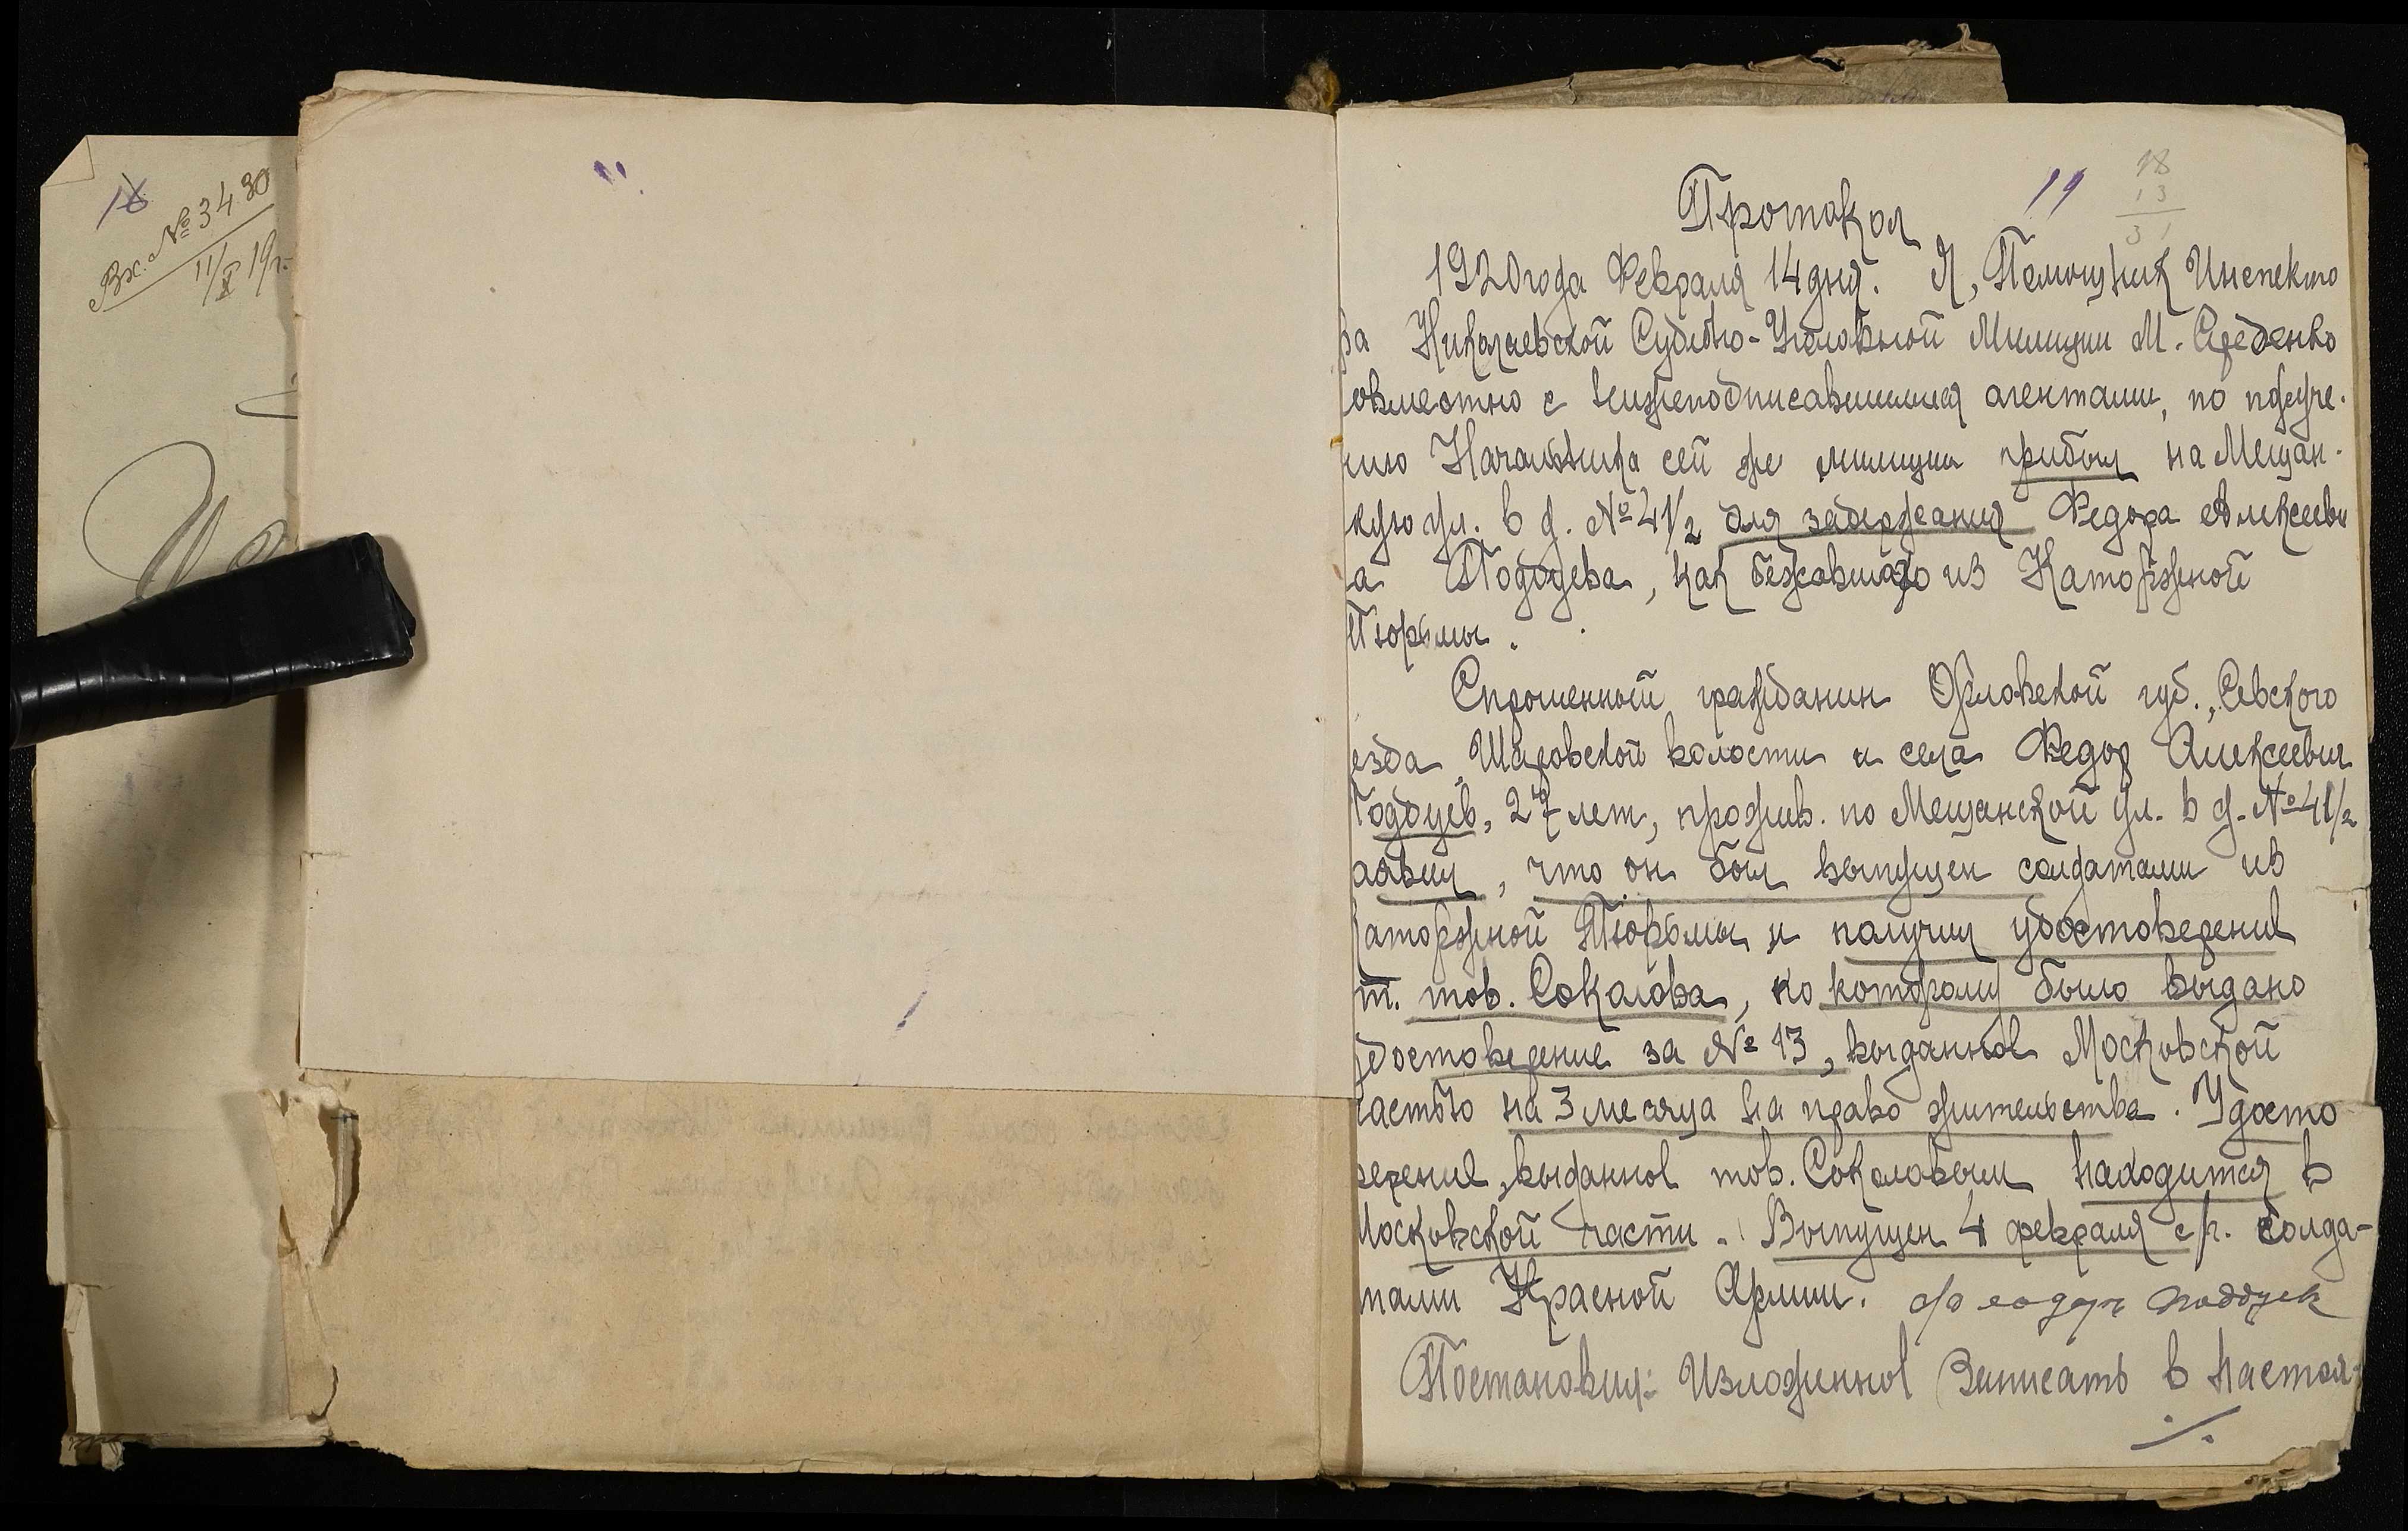 16
Вх. № 3430
11/X 19г.
19
18
13
31
Протокол
1920 года Февраля 14 дня. Я, Помощник Инспекто
ра Николаевской Судебно-Уголовной Милиции М. Середенко
овместно с нижеподписавшимися агентами, по поруче-
нию Начальника сей же милиции прибыл на Мещан-
кую ул. в д. № 41/2 для задержания Федора Алексееви
а Поддуева, как бежавшаго из Каторжной
Тюрьмы.
Спрошенный гражданин Орловской губ., Севского
езда, Шаровской волости и села Федор Алексеевич
Поддуев, 27 лет, прожив. по Мещанской ул. в д. № 41/2
аявил, что он был выпущен солдатами из
аторжной Тюрьмы и получил удостоверение
т. тов. Соколова, по которому было выдано
достоверение за № 13, выданное Московской
частью на 3 месяца на право жительства. Удосто
верение, выданное тов. Соколовым находится в
Московской части. Выпущен 4 февраля с/г. солда-
тами Красной Армии. Феодор Поддуев
Постановил: Изложенное Записать в настоя-
./.